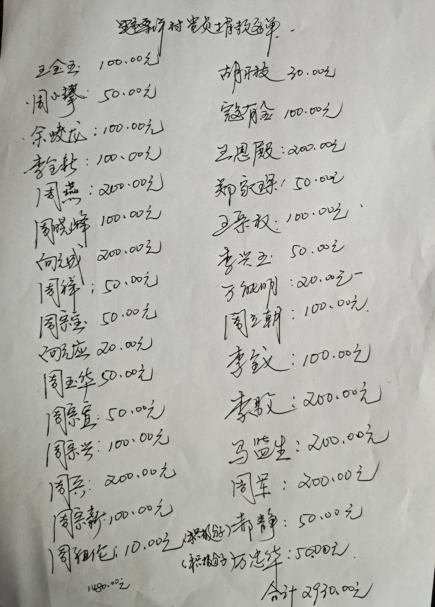 村党员捐款名单
王全玉 100.00元
周小攀: 50.00元
余蛟龙: 100.00元
李全秋: 100.00元
周燕: 200.00元
周晓峰 100.00元
向元成 200.00元
周锋: 50.00元
周宗宝 50.00元
向元应 20.00元
周玉华 50.00元
周宗宣: 50.00元
周宗兴: 100.00元
周兵: 200.00元
周宗新: 100.00元
周祖伦: 10.00元
1480.00元
胡开枝 30.00元
寇有金 100.00元
王恩殿: 200.00元
郑家琛: 50.00元
王宗权: 100.00元
李兴玉 50.00元
万能明: 20.00元
周立朝: 100.00元
李钺: 100.00元
李毅: 200.00元
马监生: 200.00元
周军: 200.00元
(积极分子) 郝静: 50.00元
(积极分子) 万忠华: 50.00元
合计 2930.00元